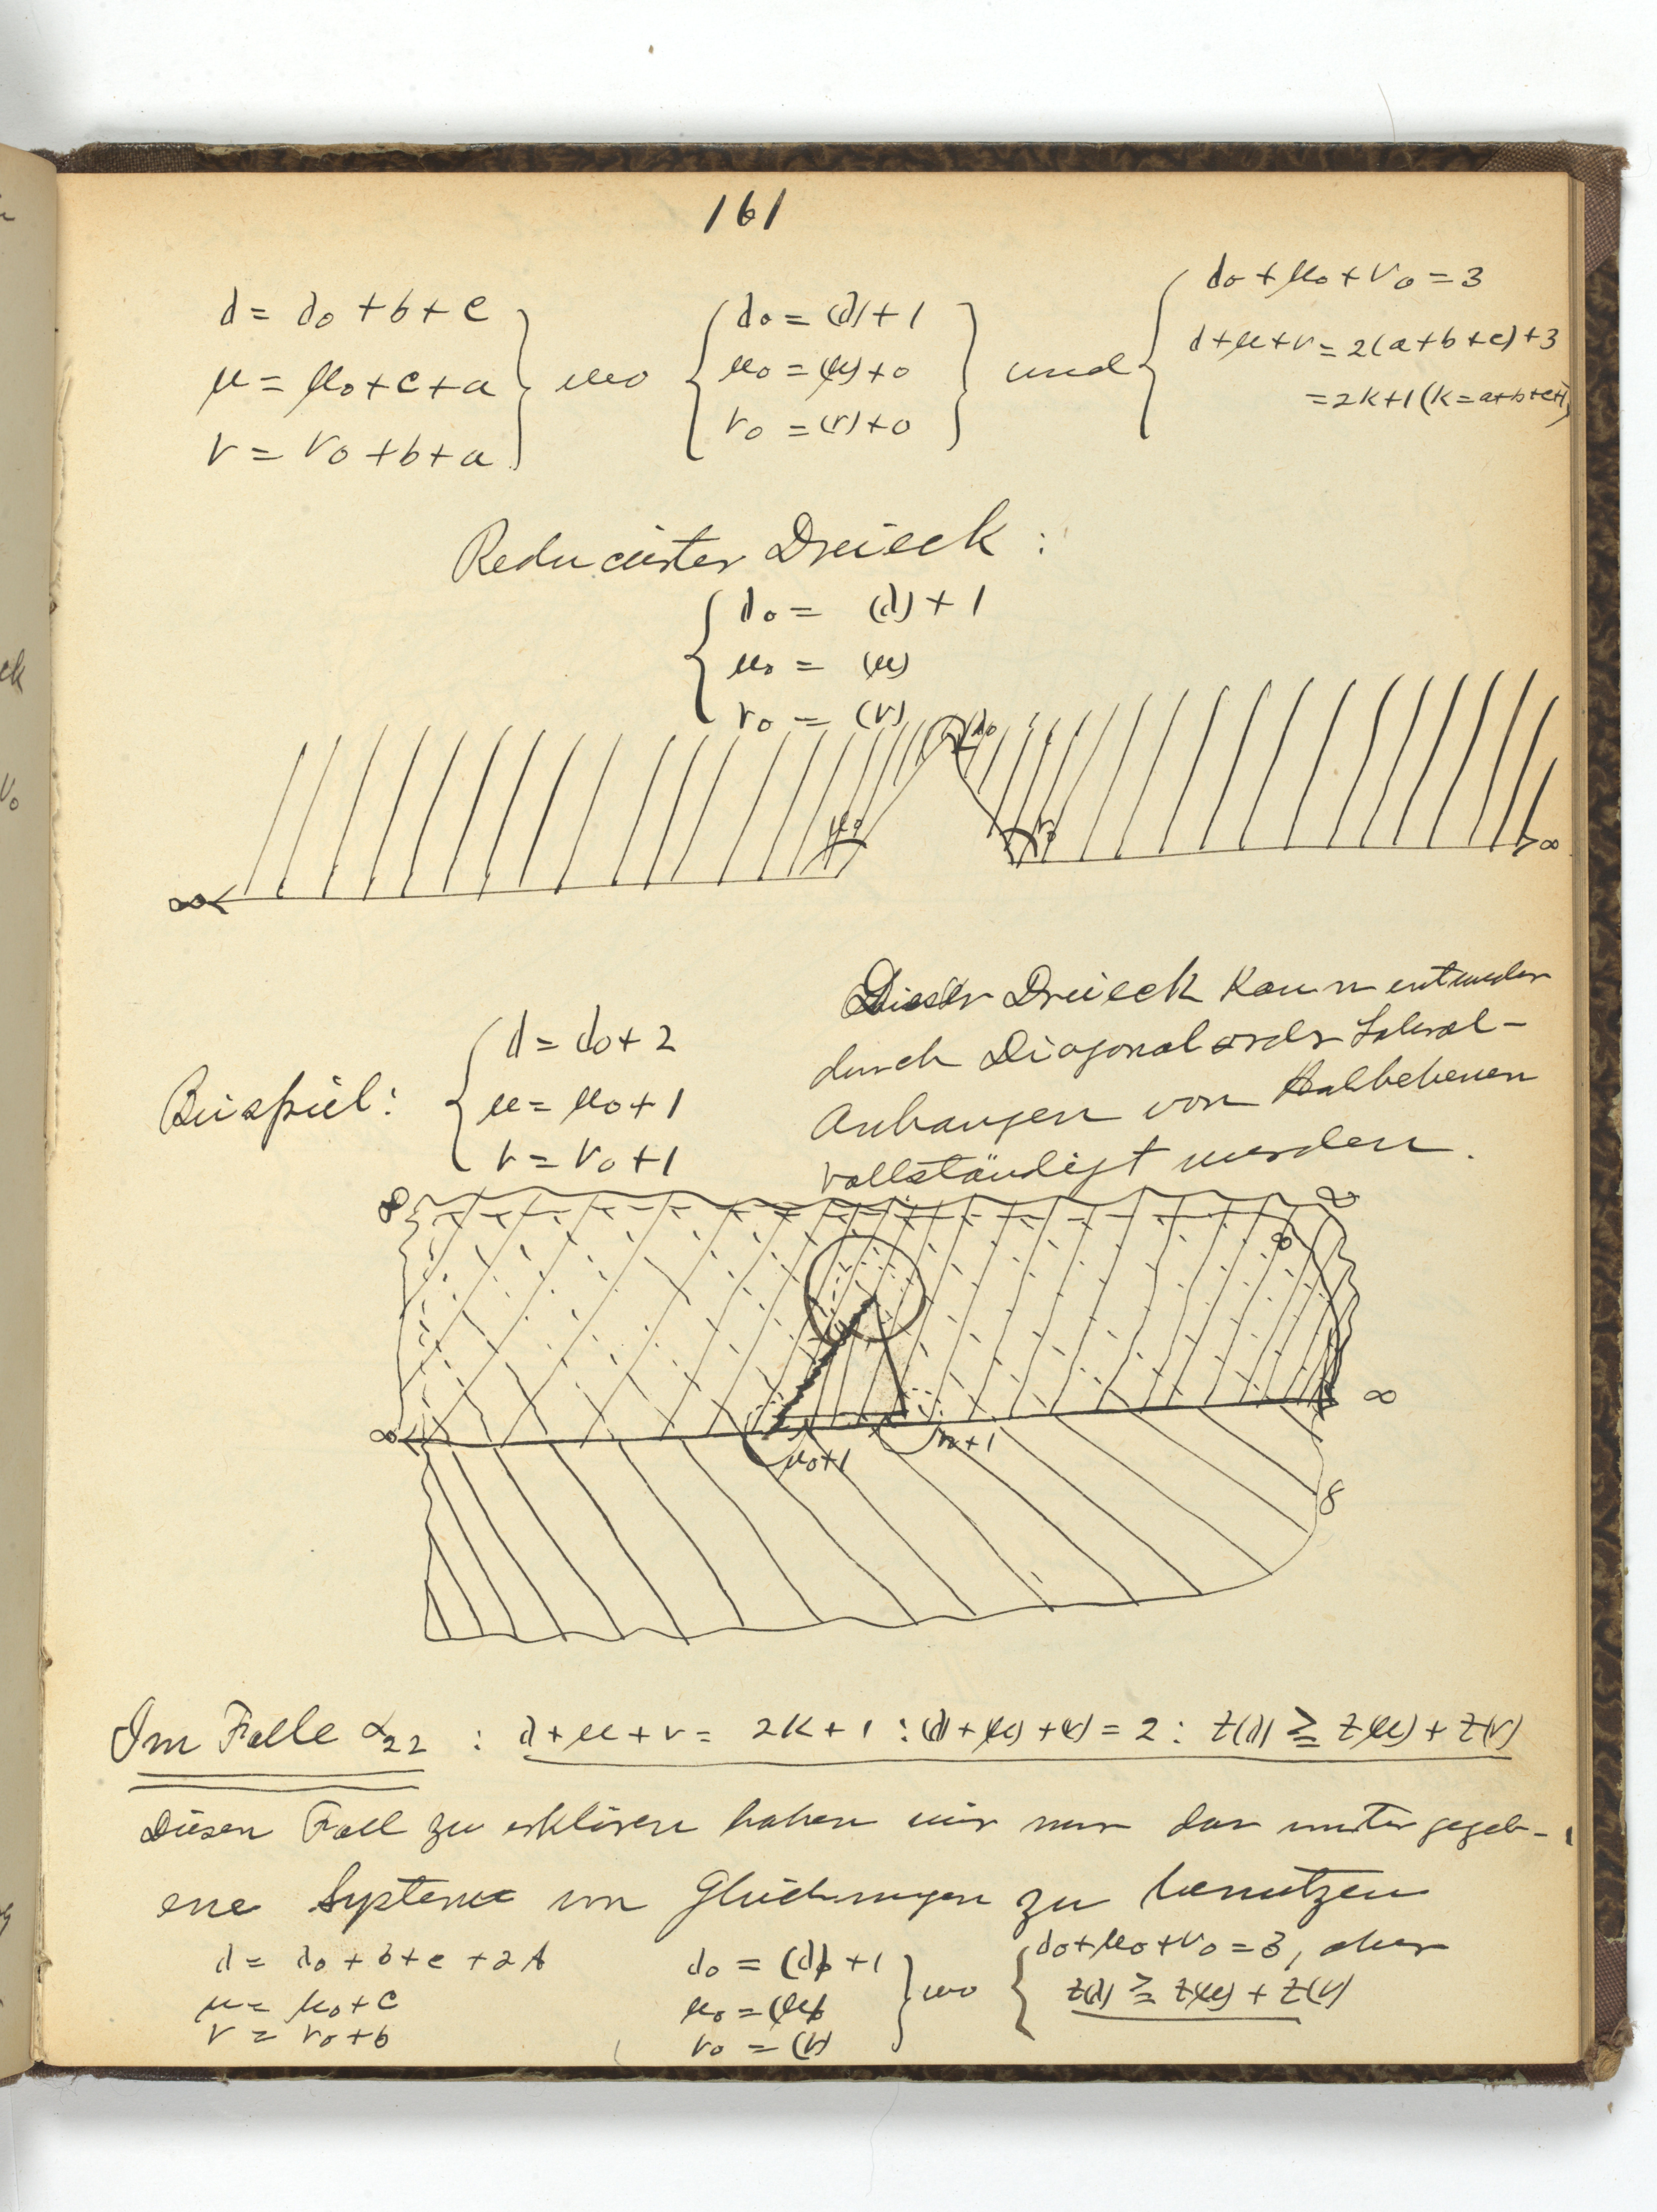 161
λ = λ₀ + b + c
μ = μ₀ + c + a
ν = ν₀ + b + a
wo
λ₀ = (λ) + 1
μ₀ = (μ) + 0
ν₀ = (ν) + 0
und
λ₀ + μ₀ + ν₀ = 3
λ + μ + ν = 2(a+b+c) + 3
= 2k+1 (k = a+b+c+1)
Reducirter Dreieck :
λ₀ = (λ) + 1
μ₀ = (μ)
ν₀ = (ν)
λ₀
μ₀
ν₀
∞
∞
Dieser Dreieck kann entweder
durch Diagonal oder Lateral-
Anhangen von Halbebenen
vollständigt werden.
Beispiel:
λ = λ₀ + 2
μ = μ₀ + 1
ν = ν₀ + 1
∞
∞
∞
∞
∞
μ₀+1
ν₀+1
∞
Im Falle α₂₂ : λ + μ + ν = 2k + 1 : (λ) + (μ) + (ν) = 2 : z(λ) ≧ z(μ) + z(ν)
Diesen Fall zu erklären haben wir nur das unter gegeb-
ene Systeme von Gleichungen zu benutzen
λ = λ₀ + b + c + 2t
μ = μ₀ + c
ν = ν₀ + b
λ₀ = (λ) + 1
μ₀ = (μ)
ν₀ = (ν)
wo
λ₀ + μ₀ + ν₀ = 3, aber
z(λ) ≧ z(μ) + z(ν)